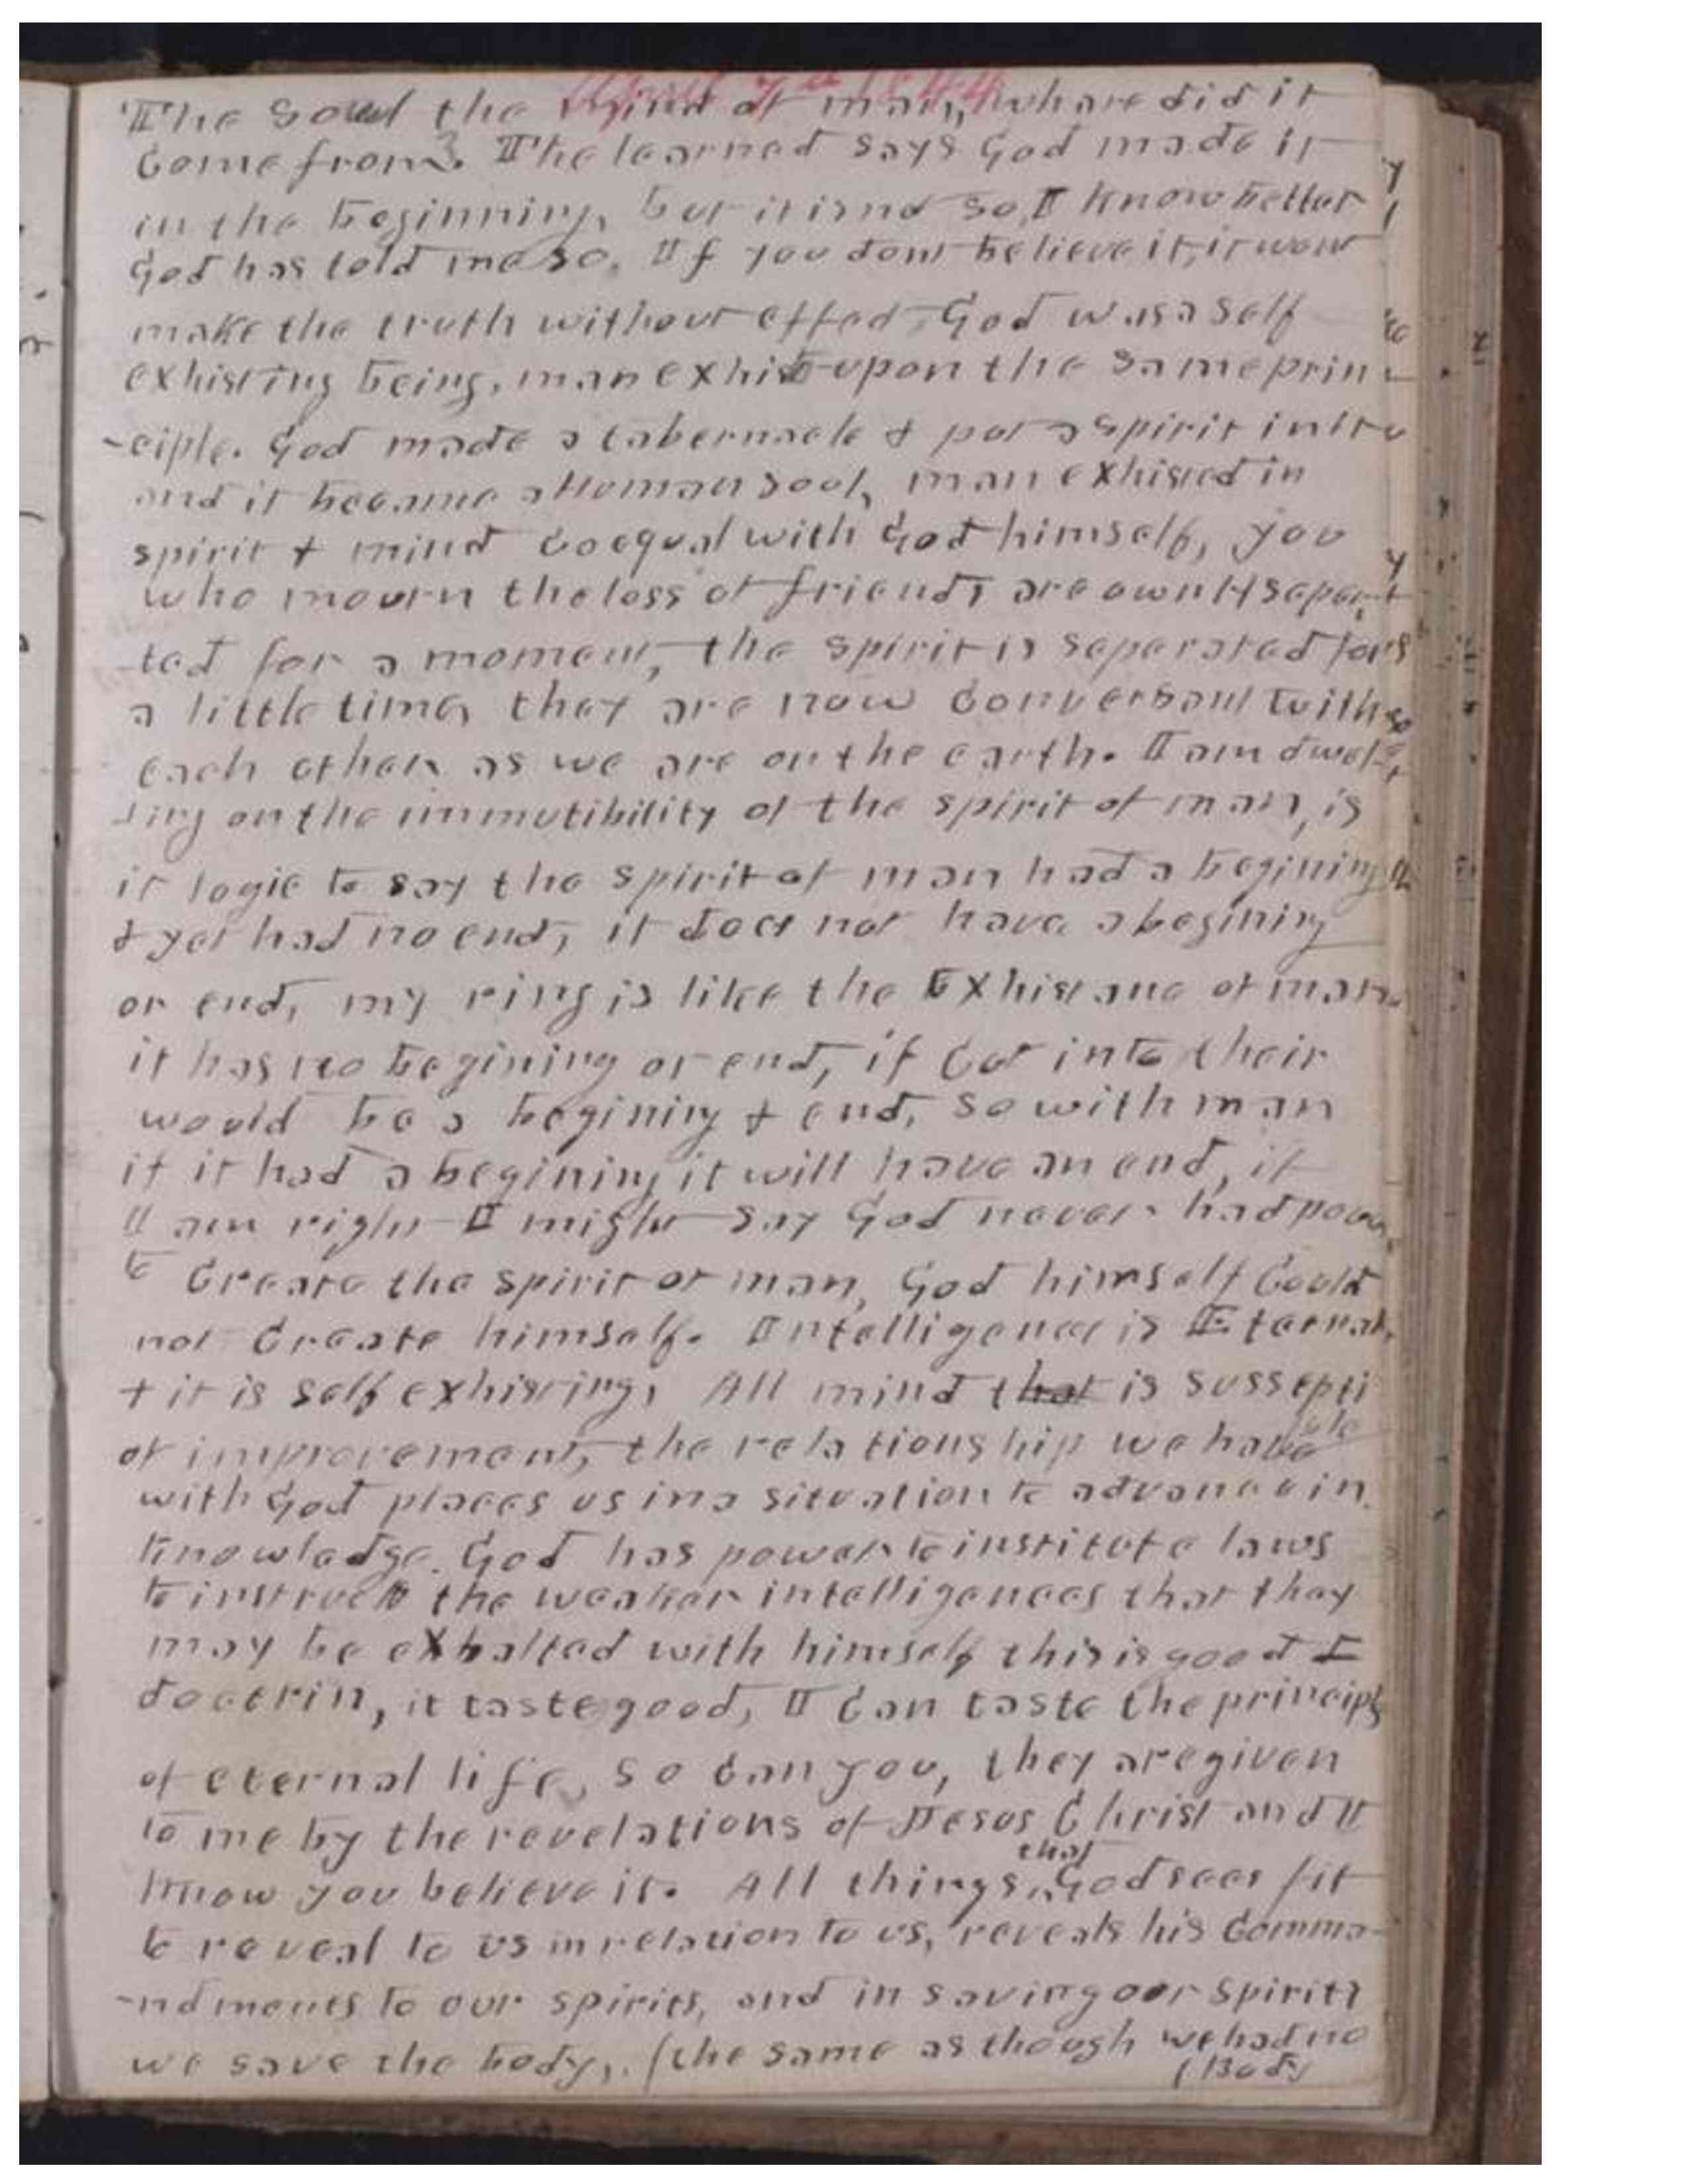 April 7th 1844
The Soul the mind of man, whare did it
Come from? The learned says God made it
in the beginning, but it is not so, I know better
God has told me so. If you dont believe it, it wont
make the truth without effect, God was a self
exhisting being, man exhist upon the same prin
-ciple. God made a tabernacle & put a spirit in it
and it became a Human soul, man exhisted in
spirit & mind Coequal with God himself, you
who mourn the loss of friends are ownly sepera
ted for a moment, the spirit is seperated for
a little time, they are now Conversant with
each other as we are on the earth. I am dwel
-ing on the immutibility of the spirit of man, is
it logic to say the spirit of man had a begining
& yet had no end, it does not have a begining
or end, my ring is like the Exhistance of man
it has no begining or end, if Cut into their
would be a begining & end, so with man
if it had a begining it will have an end, if
I am right I might say God never had power
to Create the spirit of man, God himself Could
not Create himself. Intelligence is Eternal
& it is self exhisting, All mind that is sussepti
ble
of improvement, the relationship we have
with God places us in a situation to advance in
knowledge. God has power to institute laws
to instruct the weaker intelligences that thay
may be exhalted with himself this is good
doctrin, it taste good, I Can taste the principles
of eternal life, so Can you, they are given
to me by the revelations of Jesus Christ and I
that
know you believe it. All things God sees fit
to reveal to us in relation to us, reveals his Comma-
-ndments to our spirits, and in saving our spirits
we save the body, (the same as though we had no
(Body